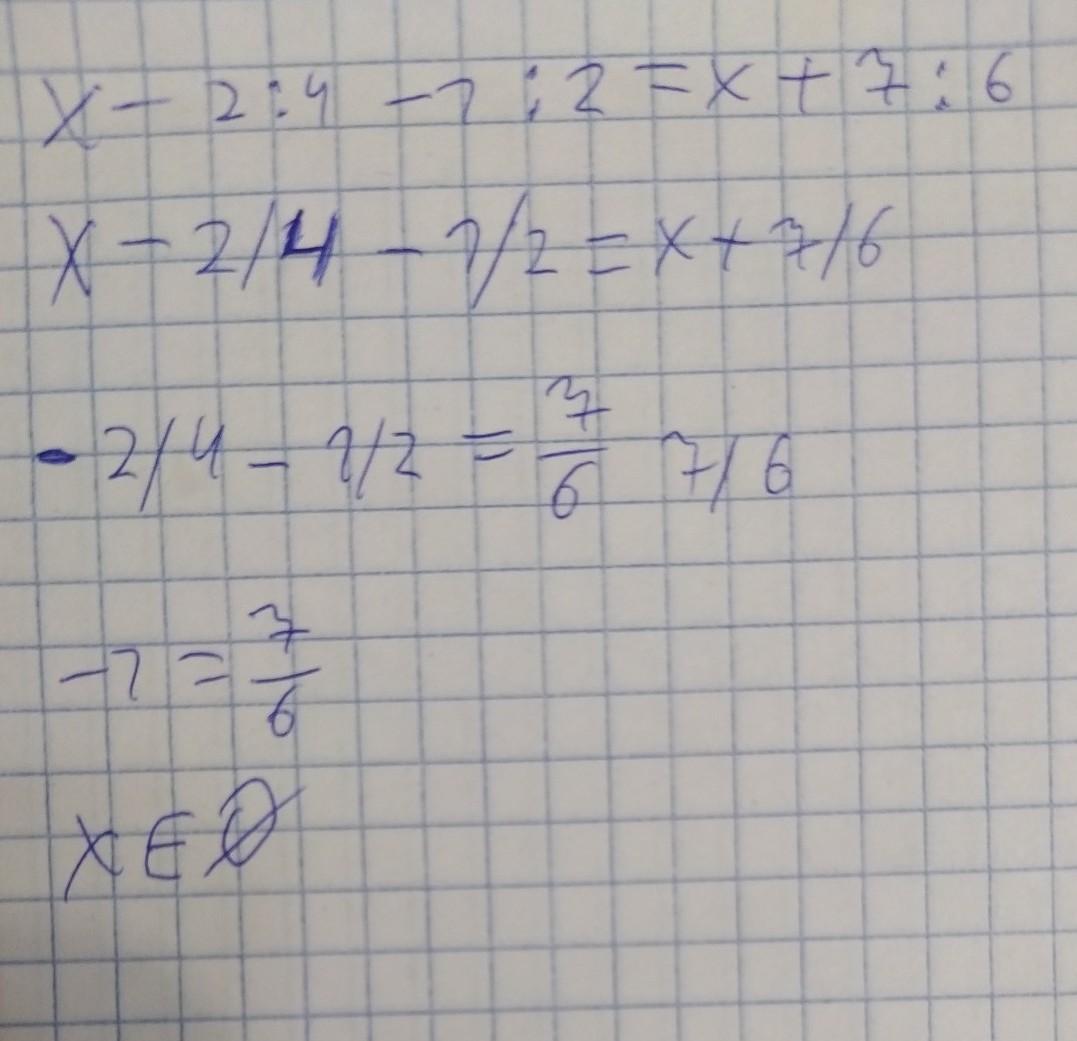 x - 2:4 - 1:2 = x + 7:6
x - 2/4 - 1/2 = x + 7/6
- 2/4 - 1/2 = 7/6 7/6
-1 = 7/6
x ∈ ∅